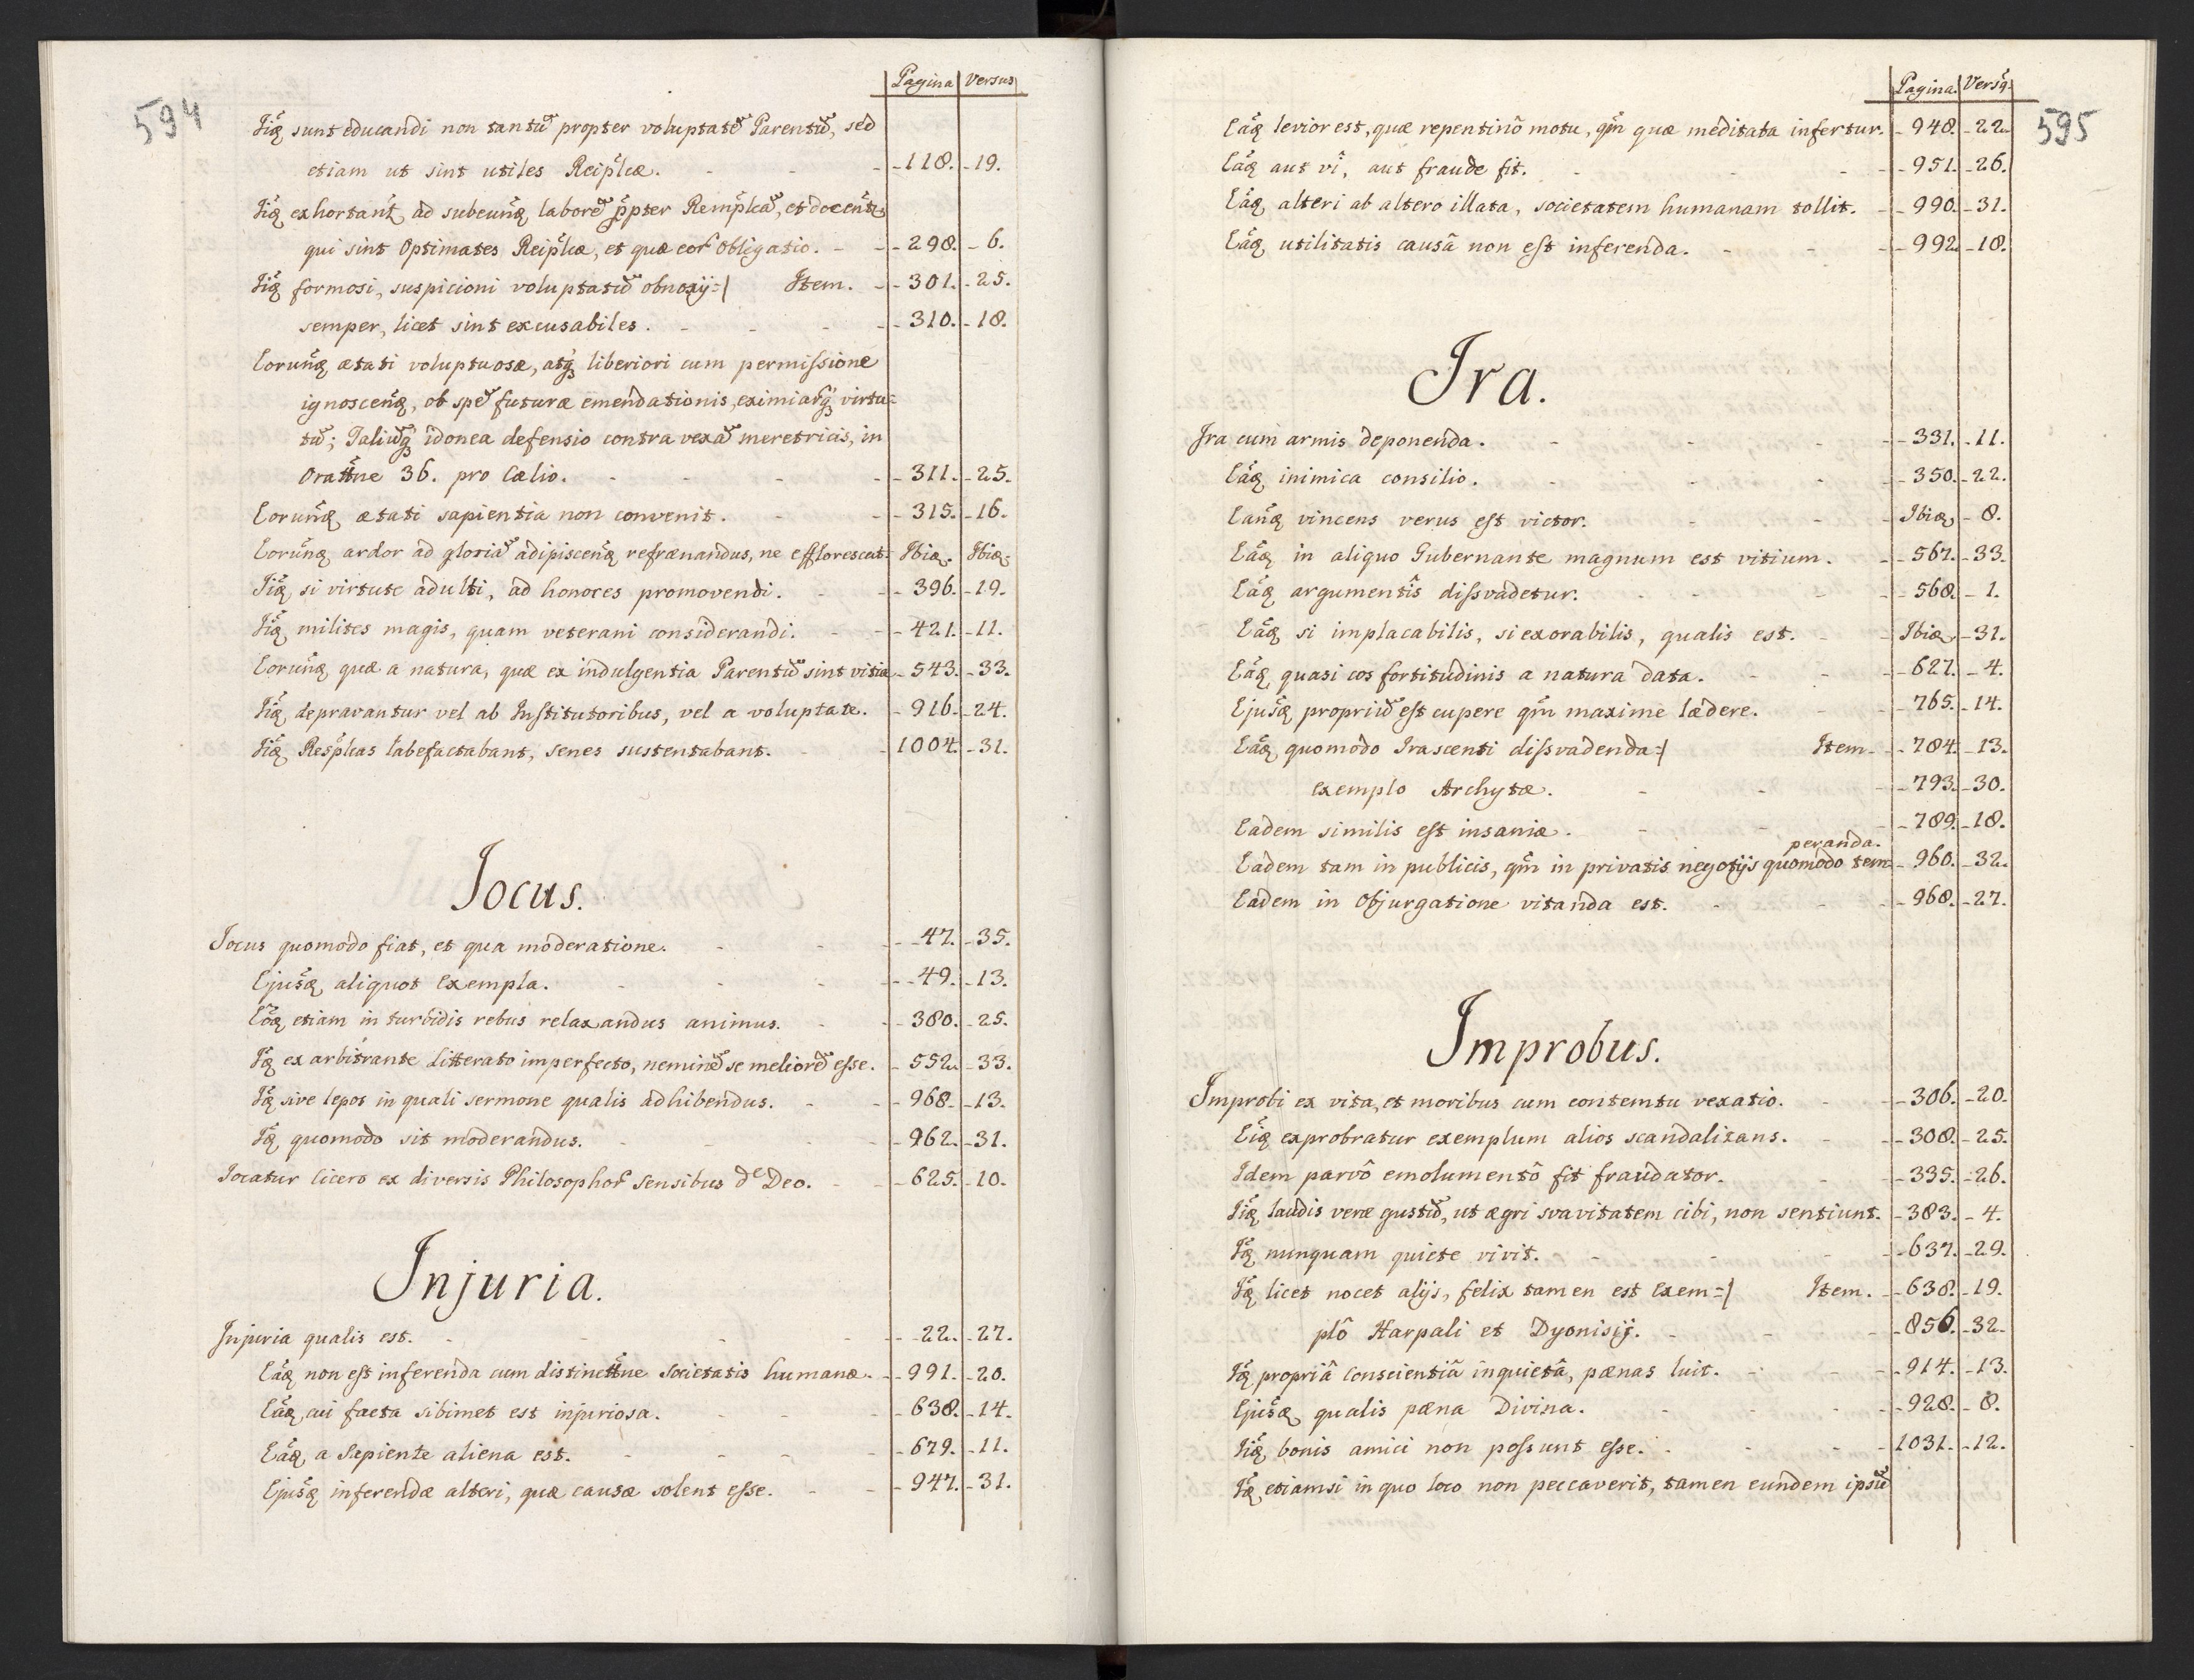 594
Pagina Versus
Iiq̃ sunt educandi non tantũ propter voluptatẽ Parentũ, sed
etiam ut sint utiles Reiplcæ. - 118. - 19.
Iiq̃ exhortant̃ ad subeunq̃ laborẽ ppter Remplcã, et docent̃
qui sint Optimates Reiplcæ, et quæ eor obligatio. - 298. - 6.
Iiq̃ formosi, suspicioni voluptatũ obnoxij Item. - 301. - 25.
semper, licet sint excusabiles. - 310. - 18.
Eorunq̃ ætati voluptuosæ, atq̃ liberiori cum permissione
ignoscenq̃, ob spẽ futuræ emendationis, eximiarq̃ virtu=
tũ; Taliũq̃ idonea defensio contra vexã meretricis, in
Oratt̃ne 36. pro Cælio. - 311. - 25.
Eorunq̃ ætati sapientia non convenit. - 315. - 16.
Eorunq̃ ardor ad gloriã adipiscenq̃ refrænandus, ne efflorescat: Ibiq. Ibiq.
Iiq̃ si virtute adulti, ad honores promovendi. - 396. - 19.
Iiq̃ milites magis, quam veterani considerandi. - 421. - 11.
Eorunq̃ quæ a natura, quæ ex indulgentia Parentũ sint vitia - 543. - 33.
Iiq̃ depravantur vel ab Institutoribus, vel a voluptate. - 916. - 24.
Iiq̃ Resplcas labefactabant, senes sustentabant. - 1004. - 31.
Jocus.
Jocus quomodo fiat, et qua moderatione. - 47. - 35.
Ejusq̃ aliquot Exempla. - 49. - 13.
Eõq̃ etiam in turbidis rebus relaxandus animus. - 380. - 25.
Iq̃ ex arbitrante Litterato imperfecto, neminẽ se meliorẽ esse. - 552. - 33.
Iq̃ sive lepos in quali sermone qualis adhibendus. - 968. - 13.
Iq̃ quomodo sit moderandus. - 962. - 31.
Jocatur Cicero ex diversis Philosophor sensibus de Deo. - 625. - 10.
Injuria.
Injuria qualis est. - 22. - 27.
Eãq̃ non est inferenda cum distinctt̃ne societatis humanæ. - 991. - 20.
Eãq̃, cui facta sibimet est injuriosa. - 638. - 14.
Eãq̃, a Sapiente aliena est. - 679. - 11.
Ejusq̃ inferendæ alteri, quæ causæ solent esse. - 947. - 31.
Pagina. Versq̃.
595
Eãq̃ levior est, quæ repentinô motu, qm̃ quæ meditata infertur. - 948. - 22.
Eãq̃ aut vî, aut fraude fit. - 951. - 26.
Eãq̃ alteri ab altero illata, societatem humanam tollit. - 990. - 31.
Eãq̃ utilitatis causâ non est inferenda. - 992. - 18.
Ira.
Ira cum armis deponenda. - 331. - 11.
Eãq̃ inimica consilio. - 350. - 22.
Eanq̃ vincens verus est victor. - Ibiq - 8.
Eãq̃ in aliquo Gubernante magnum est vitium. - 567. - 33.
Eãq̃ argumentîs dissvadetur. - 568. - 1.
Eãq̃ si implacabilis, si exorabilis, qualis est. - Ibiq - 31.
Eãq̃ quasi cos fortitudinis a natura data. - 627. - 4.
Ejusq̃ propriũ est cupere qm̃ maxime lædere. - 765. - 14.
Eãq̃ quomodo Irascenti dissvadenda Item. - 784. - 13.
exemplo Archytæ. - 793. - 30.
Eadem similis est insaniæ. - 789. - 18.
peranda.
Eadem tam in publicis, qm̃ in privatis negotijs quomodo tem - 960. - 32.
Eadem in objurgatione vitanda est. - 968. - 27.
Improbus.
Improbi ex vita, et moribus cum contemtu vexatio. - 306. - 20.
Eiq̃ exprobratur exemplum alios scandalizans. - 308. - 25.
Idem parvô emolumentô fit fraudator. - 335. - 26.
Iiq̃ laudis veræ gustũ, ut ægri svavitatem cibi, non sentiunt. - 383. - 4.
Iq̃ nunquam quiete vivit. - 637. - 29.
Iq̃ licet nocet alijs, felix tamen est Exem= Item. - 638. - 19.
plô Harpali et Dyonisij. - 856. - 32.
Iq̃ propriâ conscientiâ inquietâ, pænas luit. - 914. - 13.
Ejusq̃ qualis pæna Divina. - 928. - 8.
Iiq̃ bonis amici non possunt esse. - 1031. - 12.
Iq̃ etiamsi in quo loco non peccaverit, tamen eundem ipsũ